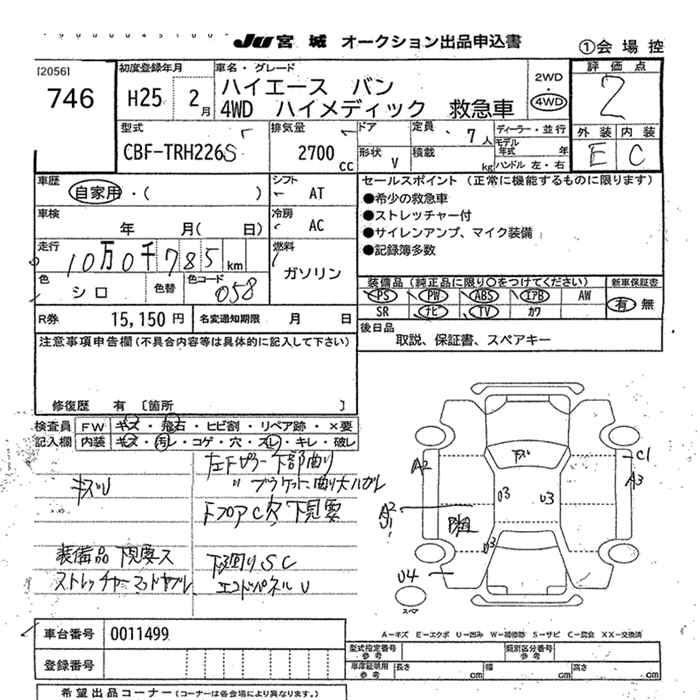 JU 宮城 オークション出品申込書
①会場控
[2056]
746
初度登録年月
H25 2月
車名・グレード
ハイエース バン
4WD ハイメディック 救急車
2WD
4WD
評価点
2
外装 内装
E C
型式
CBF-TRH226S
排気量
2700 cc
ドア
形状 V
定員 7人
積載 kg
ディーラー・並行
モデル年式 年
ハンドル 左・右
車歴
自家用・( )
シフト
AT
セールスポイント (正常に機能するものに限ります)
●希少の救急車
●ストレッチャー付
●サイレンアンプ、マイク装備
●記録簿多数
車検 年 月( 日)
冷房
AC
走行
10万0千785km
燃料
ガソリン
色
シロ
色替
色コード
058
装備品 (純正品に限り○をつけてください)
新車保証書
PS PW ABS エアB AW
SR ナビ TV カワ
有 無
R券 15,150円
名変通知期限 月 日
後日品
取説、保証書、スペアキー
注意事項申告欄(不具合内容等は具体的に記入して下さい)
修復歴 有 〔箇所 〕
検査員
記入欄
FW キズ・飛石・ヒビ割・リペア跡・×要
内装 キズ・汚レ・コゲ・穴・スレ・キレ・破レ
左Fピラー下部曲り
〃ブラケット曲り大ハガレ
キズU
下フロアC穴 下見要
装備品 下見要ス
下廻りSC
エンドパネルU
下ズ
C1
A2
A3
U3
U3
A2
U1
U3
U4
スペア
A―キズ E―エクボ U―凹み W―補修跡 S―サビ C―腐食 XX―交換済
車台番号 0011499
登録番号
型式指定番号
参考
類別区分番号
参考
車庫証明用
参考
長さ cm 幅 cm 高さ cm
希望出品コーナー (コーナーは各会場により異なります。)